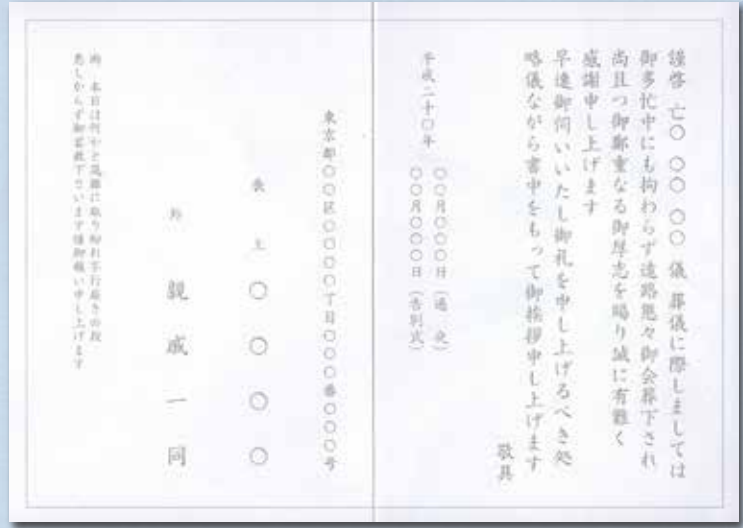 謹啓 亡〇 〇〇 〇〇 儀 葬儀に際しましては
御多忙中にも拘わらず遠路態々御会葬下され
尚且つ御鄭重なる御厚志を賜り誠に有難く
感謝申し上げます
早速御伺いいたし御礼を申し上げるべき処
略儀ながら書中をもって御挨拶申し上げます
敬具
平成二十〇年
〇〇月〇〇〇日(通 夜)
〇〇月〇〇〇日(告別式)
東京都〇〇区〇〇〇〇丁目〇〇〇番〇〇〇号
喪主 〇〇〇〇
外 親戚一同
尚 本日は何かと混雑に取り紛れ不行届きの段
悪しからず御容赦下さいます様御願い申し上げます